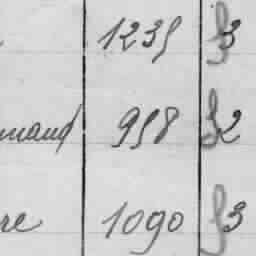 1235 3
mand 958 2
re 1090 3